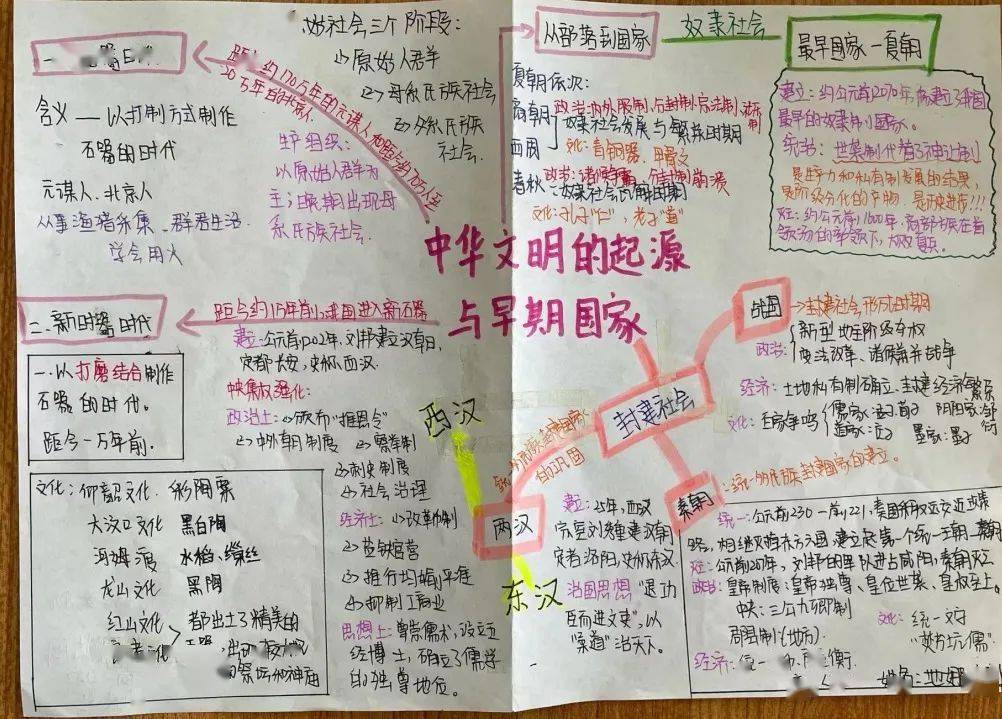 中华文明的起源
与早期国家
含义——以打制方式制作
石器的时代
元谋人、北京人
从事渔猎采集、群居生活
学会用火
社会三个阶段:
原始人群
母系氏族社会
父系氏族
社会
距今约170万年的元谋人和距今约70万年至
20万年的北京人
生产组织:
以原始人群为
主;晚期出现母
系氏族社会.
从部落到国家
奴隶社会
最早国家—夏朝
夏朝依次:
商朝
西周
春秋
政治:内外服制、分封制、宗法制
奴隶社会发展与繁荣时期
文化:青铜器、甲骨文
政治:诸侯争霸、分封制崩溃
奴隶社会瓦解时期
文化:孔子“仁”,老子“道”
建立:约公元前2070年,禹建立了我国
最早的奴隶制国家。
统治:世袭制代替了禅让制
是生产力和私有制发展的结果,
是阶级分化的产物,是历史进步!!!
灭亡:约公元前1600年,商部族在首
领汤的率领下,大败夏桀。
二、新石器时代
一.以打磨结合制作
石器的时代。
距今一万年前.
文化:仰韶文化 彩陶
大汶口文化 黑白陶
河姆渡 水稻、缫丝
龙山文化 黑陶
红山文化
都出土了精美的
祭坛和神庙
西汉
建立:公元前202年,刘邦建立汉朝,
定都长安,史称西汉.
中央集权强化:
政治上:颁布“推恩令”
中外朝制度
察举制
刺史制度
社会治理
经济上:改革币制
盐铁官营
推行均输平准
抑制工商业
思想上:尊崇儒术,设立五
经博士,确立了儒学
的独尊地位。
封建社会
统一多民族封建国家
的巩固
两汉
东汉
建立:25年,西汉
宗室刘秀重建汉朝
定都洛阳,史称东汉.
治国思想“退功
臣而进文吏”,以
“柔道”治天下。
战国
封建社会形成时期
政治:
新型地主阶级夺权
变法改革、诸侯兼并战争
经济:土地私有制确立、封建经济繁荣
文化:百家争鸣
儒家:孟子荀子
道家:庄子
阴阳家:邹衍
墨家:墨子
秦朝
统一多民族封建国家的建立。
统一:公元前230—前221,秦国采取远交近攻策
略,相继灭掉东方六国,建立起第一个统一王朝—秦朝
灭亡:公元前207年,刘邦的军队进占咸阳,秦朝灭亡.
政治:皇帝制度:皇帝独尊、皇位世袭、皇权至上.
中央:三公九卿制
郡县制(地方).
文化:统一文字
“焚书坑儒”
经济:统一 衡.